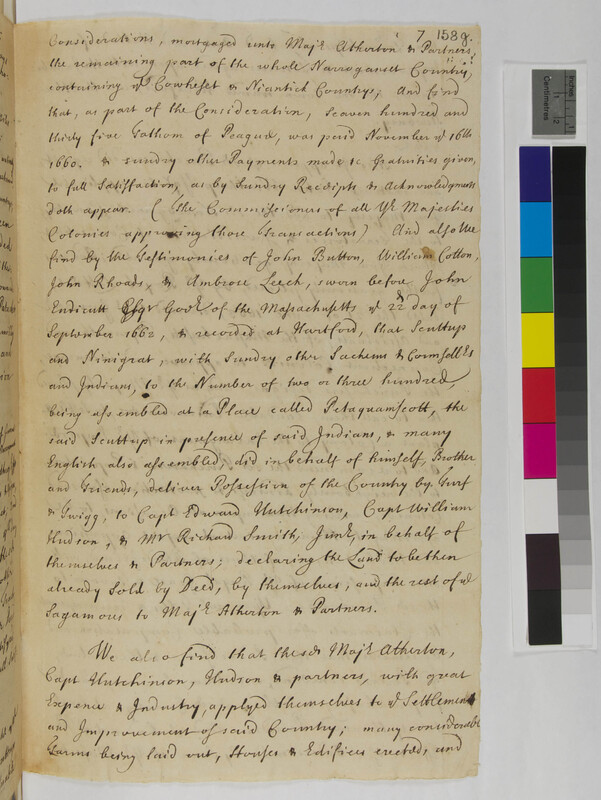 7 158g.
Considerations, mortgaged unto Majr. Atherton & Partners,
the remaining part of the whole Narroganset Country,
containing ye Cowheset & Niantick Countrys; And find
that, as part of the Consideration, Seaven hundred and
thirty five Fathom of Peague, was paid November ye 16th
1660. & sundry other Payments made & Gratuities given,
to full Satisfaction, as by Sundry Receipts & Acknowledgmts
doth appear. (the Commissioners of all Yr Majesties
Colonies approving those Transactions) And also We
find by the Testimonies of John Button, William Cotton,
John Rhoads, & Ambrose Leech, sworn before John
Endicutt Esqr Govr. of the Massachusetts ye 22d day of
September 1662, & recorded at Hartford, that Scuttup
and Ninigrat, with Sundry other Sachems & Counsellrs
and Indians, to the Number of two or three hundred,
being assembled at a Place called Petaquamscott, the
said Scuttup in presence of said Indians, & many
English also assembled, did in behalf of himself, Brother
and Friends, deliver Possession of the Country by Turf
& Twigg, to Capt Edward Hutchinson, Capt William
Hudson, & Mr Richard Smith, Junr. in behalf of
themselves & Partners; declaring the Land to be then
already Sold by Deed, by themselves, and the rest of ye
Sagamores to Majr. Atherton & Partners.
We also find that the sd Majr. Atherton,
Capt Hutchinson, Hudson & partners, with great
Expence & Industry, applyed themselves to ye Settlement
and Improvement of said Country; many considerable
Farms being laid out, Houses & Edifices erected, and
Inches
Centimetres